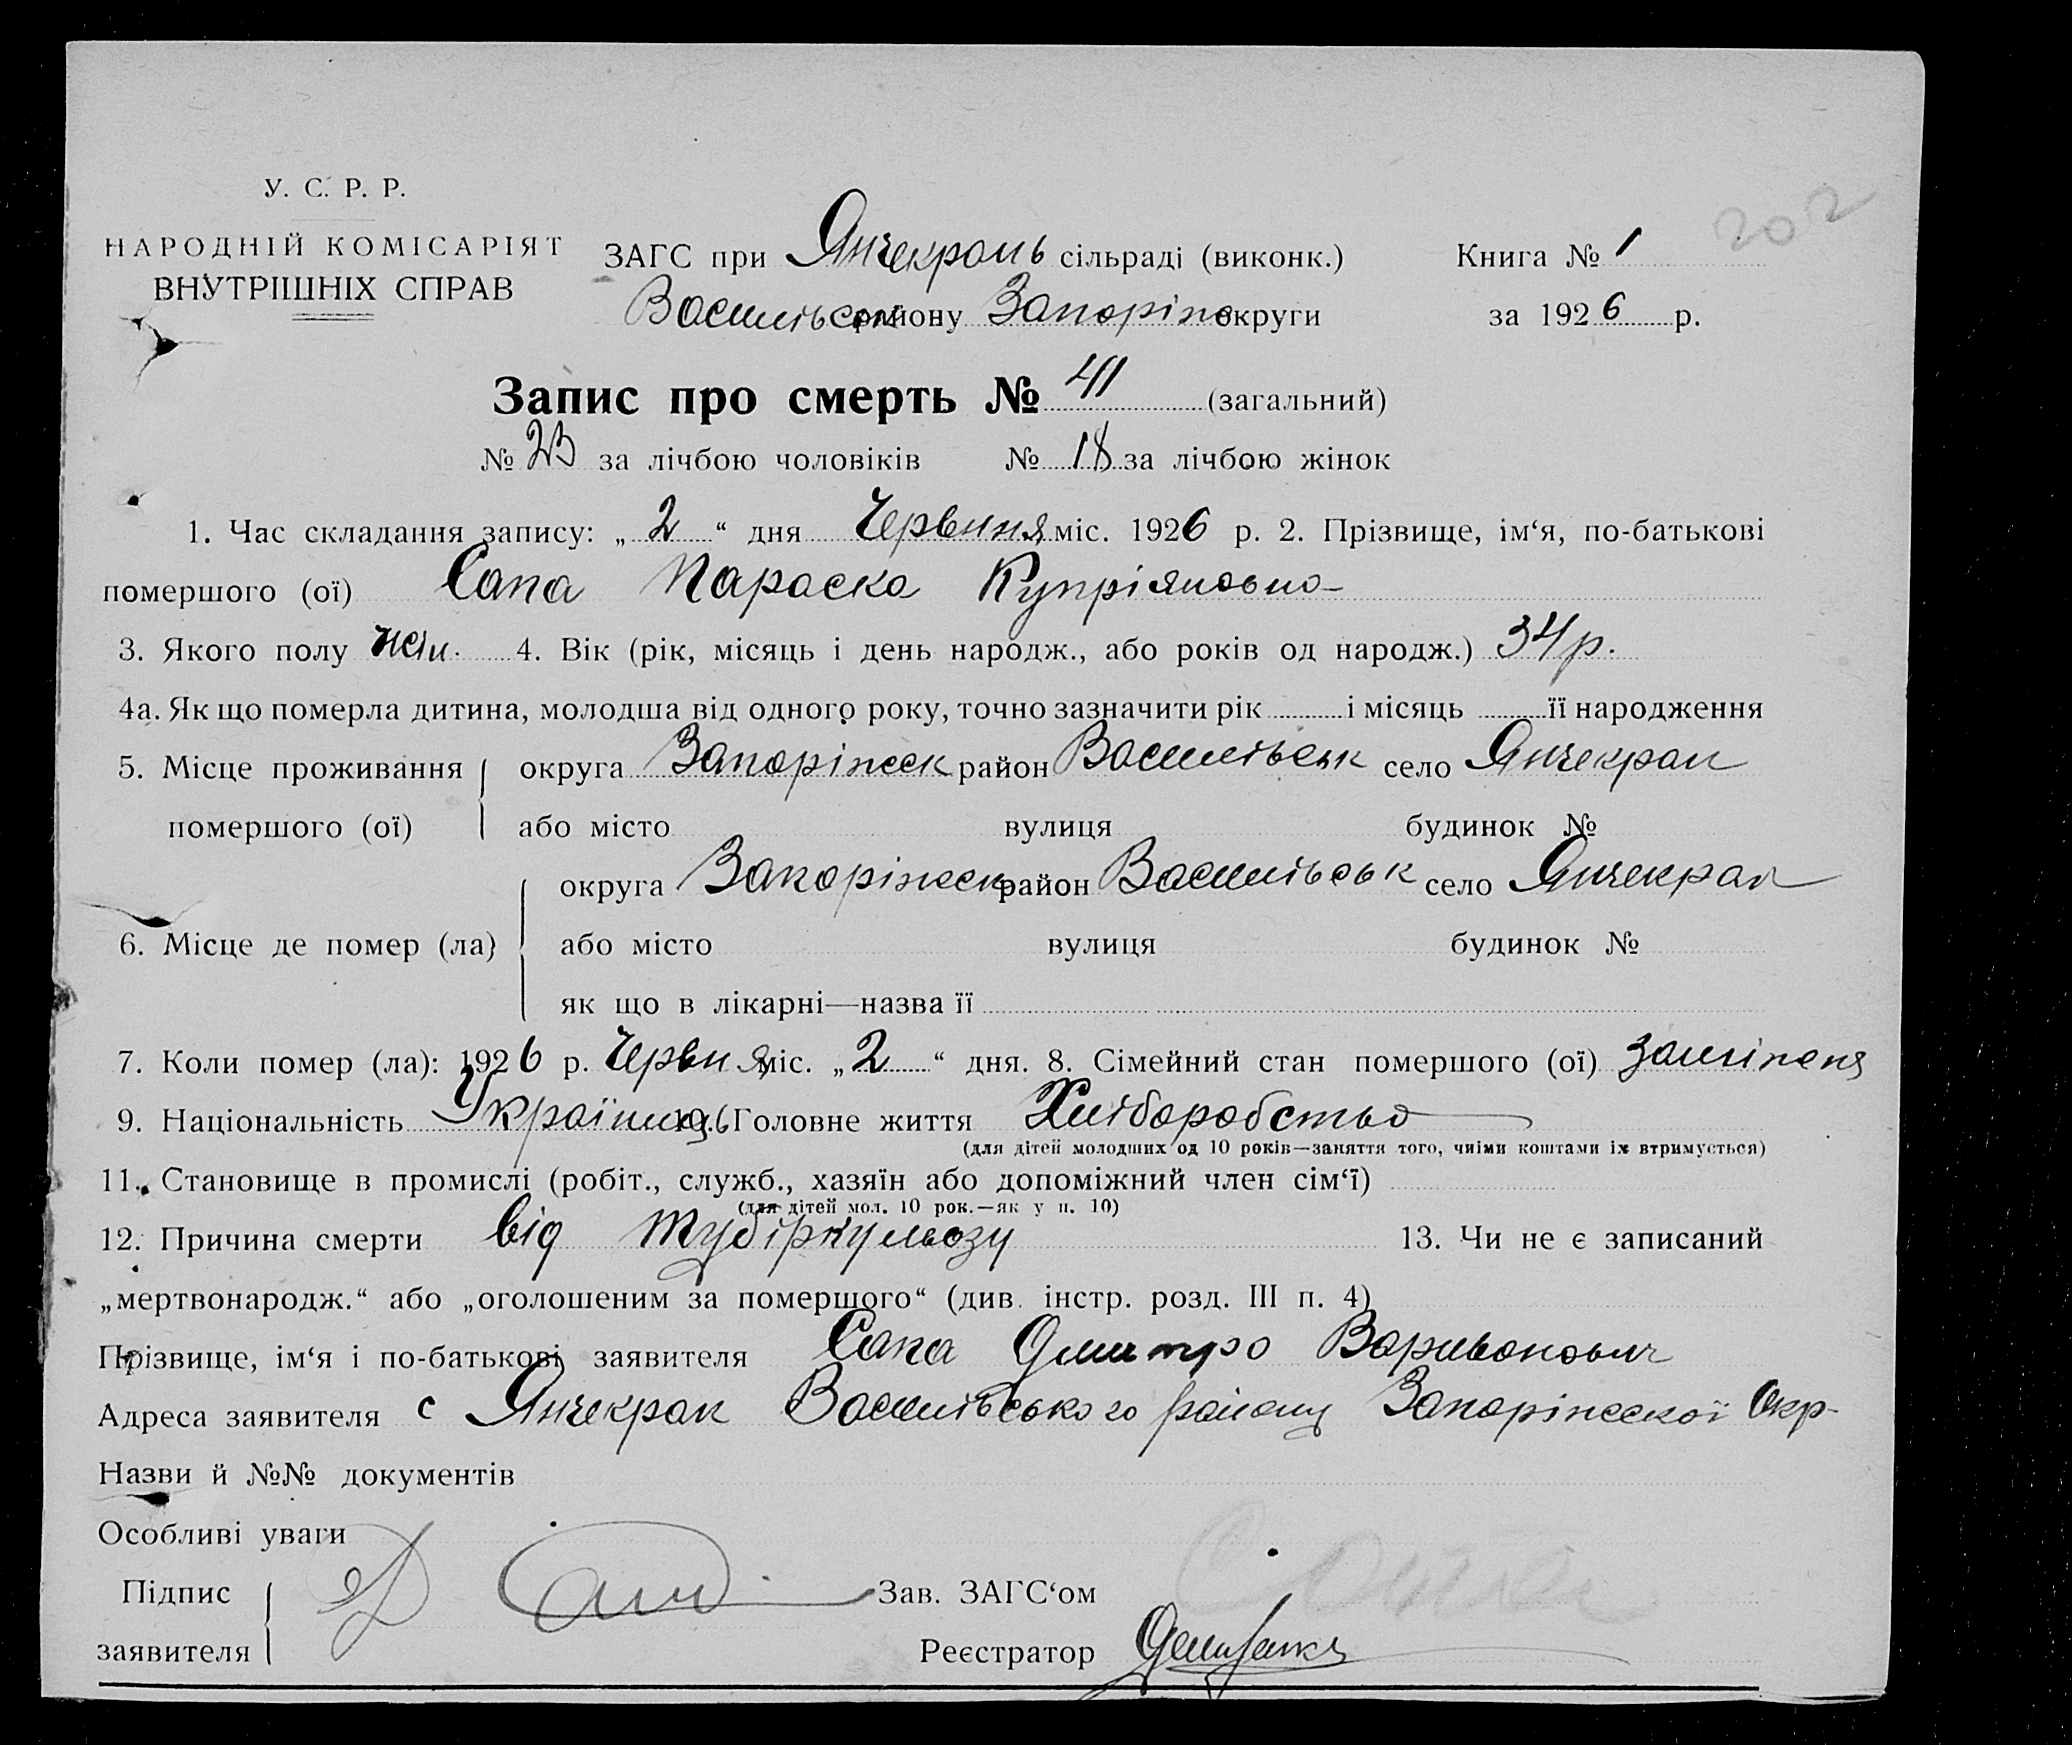 202
У. С. Р. Р.
НАРОДНІЙ КОМІСАРІЯТ
ВНУТРІШНІХ СПРАВ
ЗАГС при Янчекракь сільраді (виконк.) Книга № 1
Васильевск району Запоріж округи за 1926 р.
Запис про смерть № 41 (загальний)
№ 23 за лічбою чоловіків № 18 за лічбою жінок
1. Час складання запису: „2“ дня Червння міс. 1926 р. 2. Прізвище, ім‘я, по-батькові
помершого (ої) Сапа Параска Купріяновна
3. Якого полу жін. 4. Вік (рік, місяць і день народж., або років од народж.) 34 р.
4а. Як що померла дитина, молодша від одного року, точно зазначити рік і місяць її народження
5. Місце проживання округа Запоріжск район Васильськ село Янчекрак
помершого (ої) або місто вулиця будинок №
округа Запоріжск район Васильськ село Янчекрак
6. Місце де помер (ла) або місто вулиця будинок №
як що в лікарні—назва її
7. Коли помер (ла): 1926 р. Червня міс. „2“ дня. 8. Сімейний стан помершого (ої) заміжня
9. Національність Українець 10. Головне життя Хліборобство
(для дітей молодших од 10 років—заняття того, чиїми коштами їх втримується)
11. Становище в промислі (робіт., служб., хазяїн або допоміжний член сім‘ї)
(для дітей мол. 10 рок.—як у п. 10)
12. Причина смерти від тубіркульозу 13. Чи не є записаний
„мертвонародж.“ або „оголошеним за помершого“ (див. інстр. розд. III п. 4)
Прізвище, ім‘я і по-батькові заявителя Сапа Дмитро Варивонович
Адреса заявителя с Янчекрак Васильського району Запоріжскої Окр-
Назви й №№ документів
Особливі уваги
Підпис заявителя Д Сапа
Зав. ЗАГС‘ом
Реєстратор